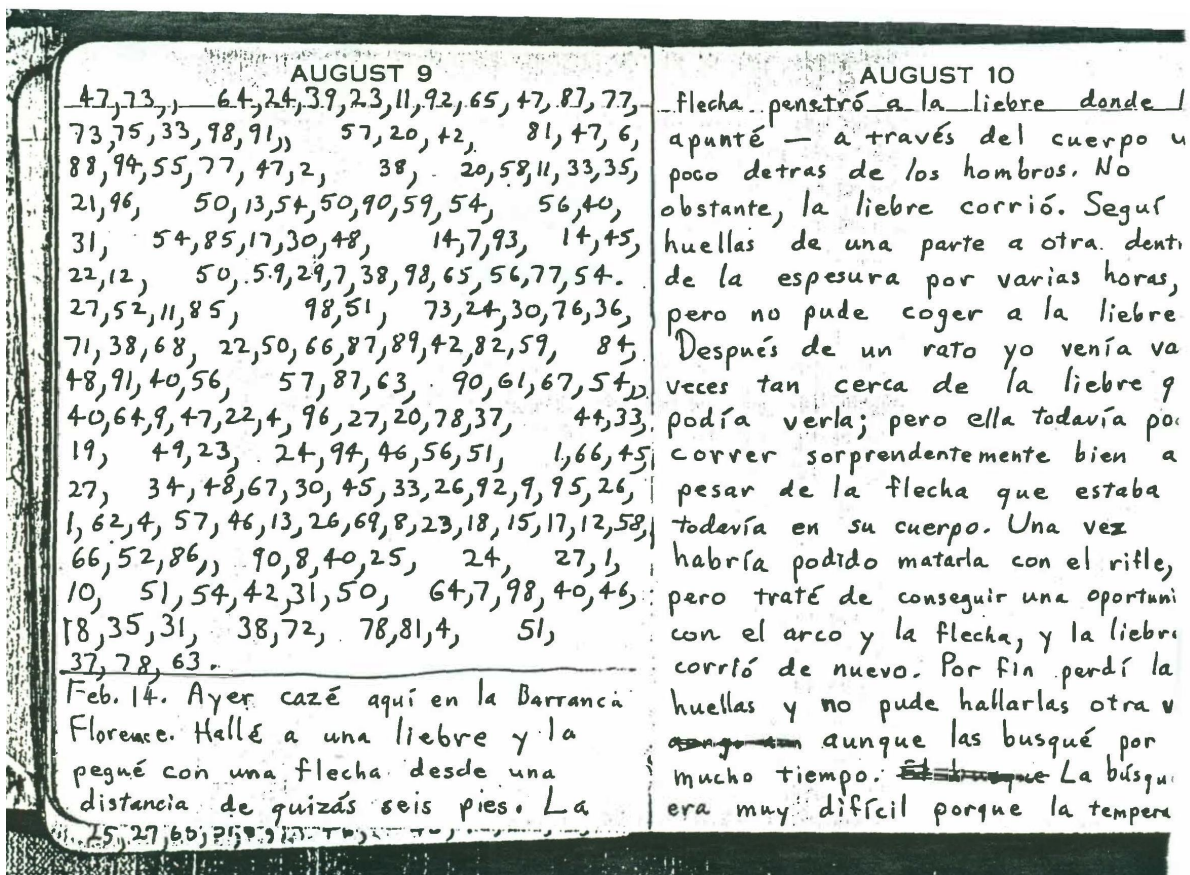 AUGUST 9
47,73,, 64,24,39,23,11,92,65,47,87,77,
73,75,33,98,91,, 57,20,42, 81,47,6,
88,94,55,77,47,2, 38, 20,58,11,33,35,
21,96, 50,13,54,50,90,59,54, 56,40,
31, 54,85,17,30,48, 14,7,93, 14,45,
22,12, 50,59,29,7,38,98,65,56,77,54.
27,52,11,85, 98,51, 73,24,30,76,36,
71,38,68, 22,50,66,87,89,42,82,59, 84,
48,91,40,56, 57,87,63, 90,61,67,54,,
40,64,9,47,22,4, 96,27,20,78,37, 44,33,
19, 49,23, 24,94,46,56,51, 1,66,45,
27, 34,48,67,30,45,33,26,92,9,95,26,
1,62,4, 57,46,13,26,69,8,23,18,15,17,12,58,
66,52,86,, 90,8,40,25, 24, 27,1,
10, 51,54,42,31,50, 64,7,98,40,46,
18,35,31, 38,72, 78,81,4, 51,
37,78,63.
Feb. 14. Ayer cazé aquí en la Barranca
Florence. Hallé a una liebre y la
pegué con una flecha desde una
distancia de quizás seis pies. La
25,27,60,
AUGUST 10
flecha penetró a la liebre donde l
apunté — a través del cuerpo u
poco detras de los hombros. No
obstante, la liebre corrió. Seguí
huellas de una parte a otra dent
de la espesura por varias horas,
pero no pude coger a la liebre
Después de un rato yo venía va
veces tan cerca de la liebre q
podía verla; pero ella todavía po
correr sorprendentemente bien a
pesar de la flecha que estaba
todavía en su cuerpo. Una vez
habría podido matarla con el rifle,
pero traté de conseguir una oportuni
con el arco y la flecha, y la liebre
corrió de nuevo. Por fin perdí la
huellas y no pude hallarlas otra v
aunque las busqué por
mucho tiempo. La búsqu
era muy difícil porque la tempera